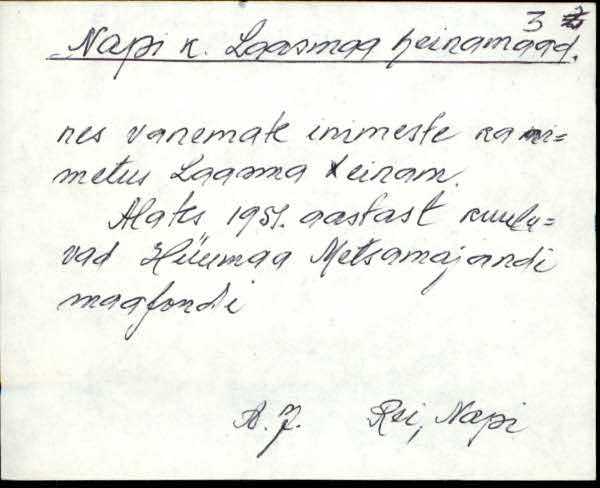 3
Napi k. Laasmaa heinamaad.
nes vanemate inimeste ka ni=
metus Laasma Heinam.
Alates 1951. aastast kuulu=
vad Hiiumaa Metsamajandi
maafondi
A. J. Rei, Napi